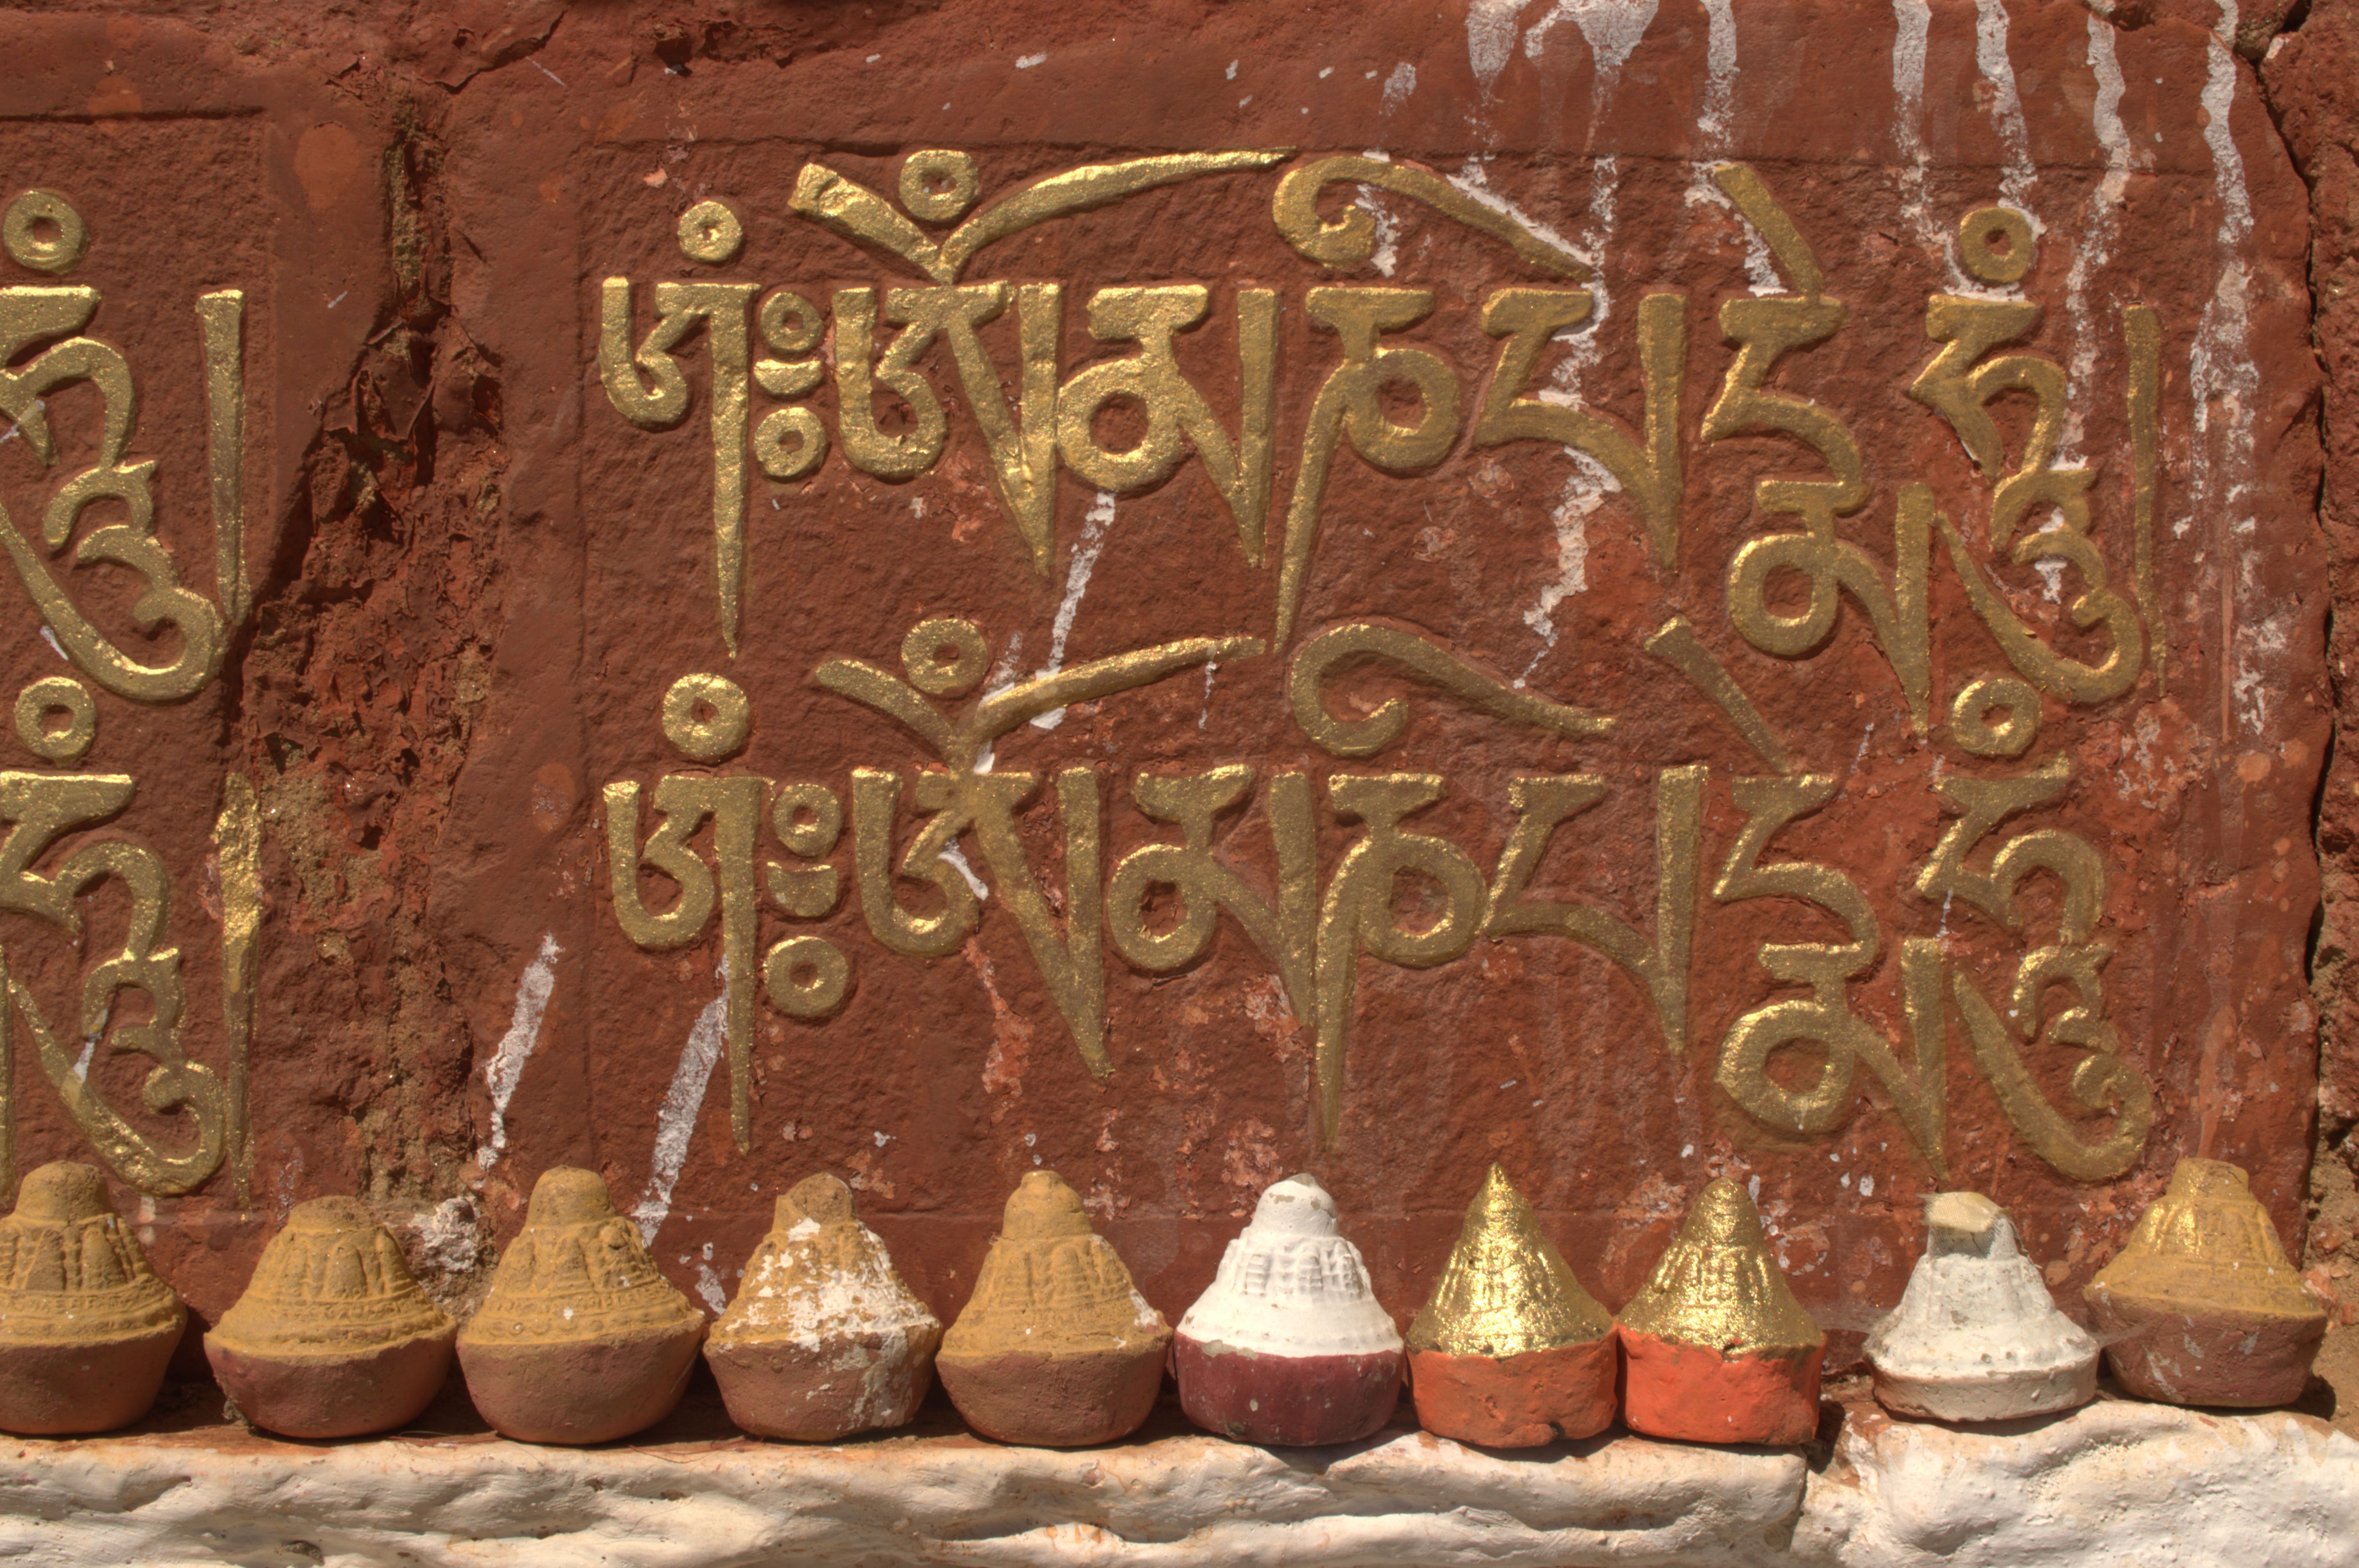 ཧཱུཾ། ཤཾ༔ཨོཾམཎིཔདྨེཧཱུཾ།
ཧཱུཾ། ཤཾ༔ཨོཾམཎིཔདྨེཧཱུཾ